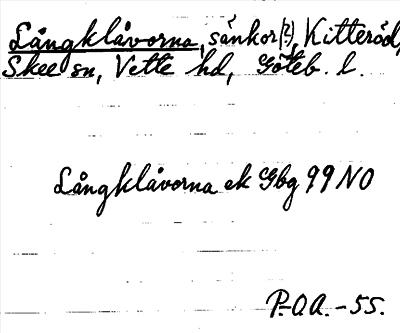 Långklåvorna, sänkor(?), Kitteröd,
Skee sn, Vette hd, Göteb. l.
Långklåvorna ek Gbg 99 NO
P-OA.-55.